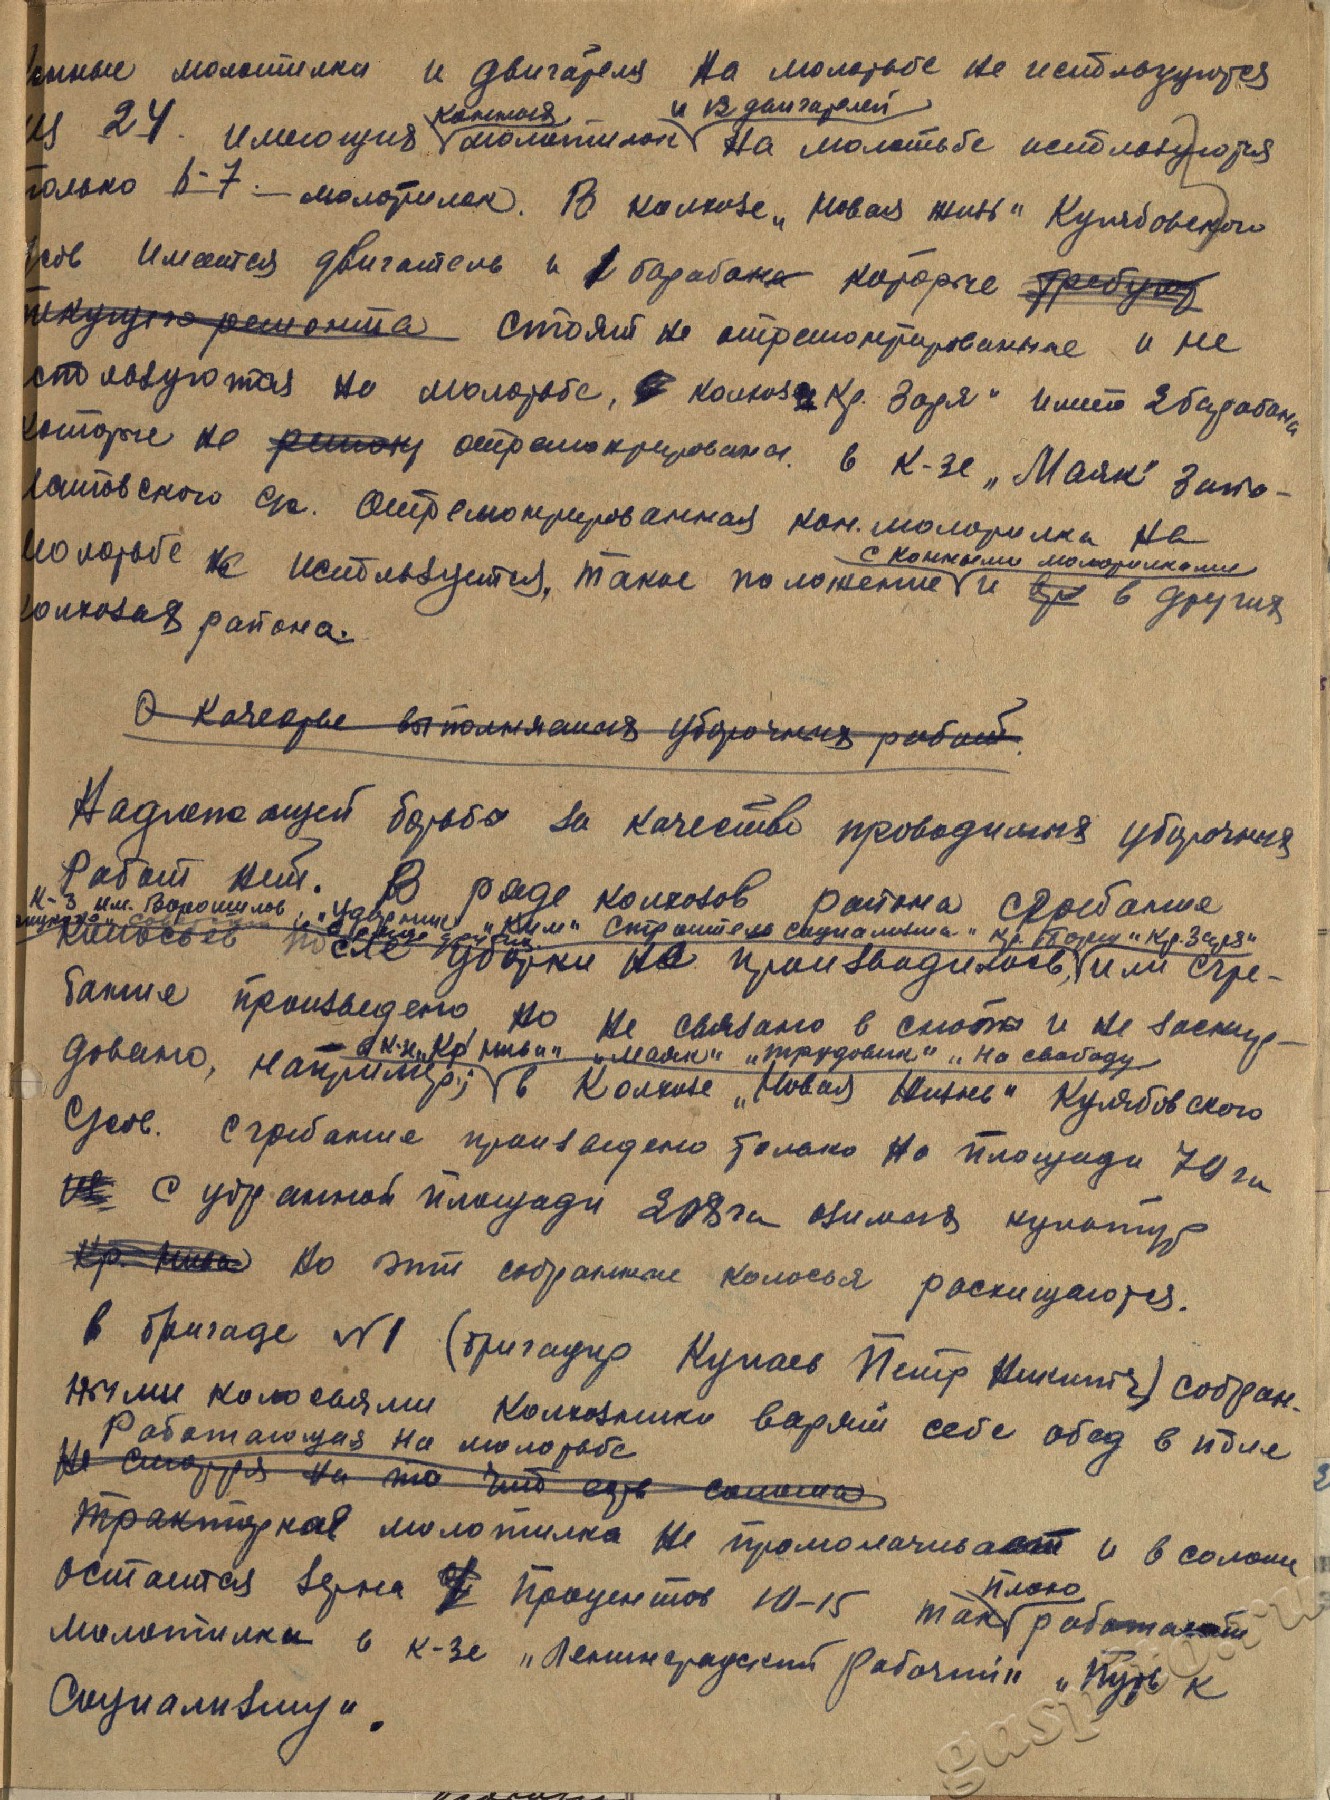 конные молотилки и двигателя на молотьбе не используются
из 24 имеющихся конных молотилок и 13 двигателей на молотьбе используются
только 6-7 молотилок. В колхозе „Новая жизь" Кулябовского
усов имеется двигатель и 1 барабана которые требуют
текущего ремонта стоят не отремонтированные и не
используются на молотьбе, колхоз „Кр. Заря" имеет 2 барабана
которые не ремон отремонтированы. в к-зе „Маяк"
с/с. Отремонтированная кон. молотилка на
молотьбе не используется, такое положение с конными молотилками и в других
колхозах района.
О качестве выполняемых уборочных работ.
Надлежащей борьбы за качество проводимых уборочных
Работ нет. В ряде колхозов района сгребание
к-з им. Ворошилов, „Ударник" „Ким" Строитель социализма" „Кр. Заря"
колосьев после уборки не производилось, или сгре-
бание произведено но не связано в снопы и не заскир-
довано, например; в к-зе „Кр нива" „Маяк" „Трудовик" „На свободу
в Колхозе „Новая Жизнь" Кулябовского
Усов. сгребание произведено только на площади 70 га
с убранной площади 208 га озимых культур
Кр. Нива но эти собранные колосья расхищаются.
в бригаде №1 (бригадир Купаев Петр Никит) собран-
ными колосьями колхозники варят себе обед в поле
Работающая на молотьбе
Не смотря на то что есть солома
Тракторная молотилка не промолачивает и в соломе
остается зерна процентов 10-15 так плохо работает
молотилка в к-зе „Ленинградский Рабочий" „Путь к
Социализму".
gaspito.ru